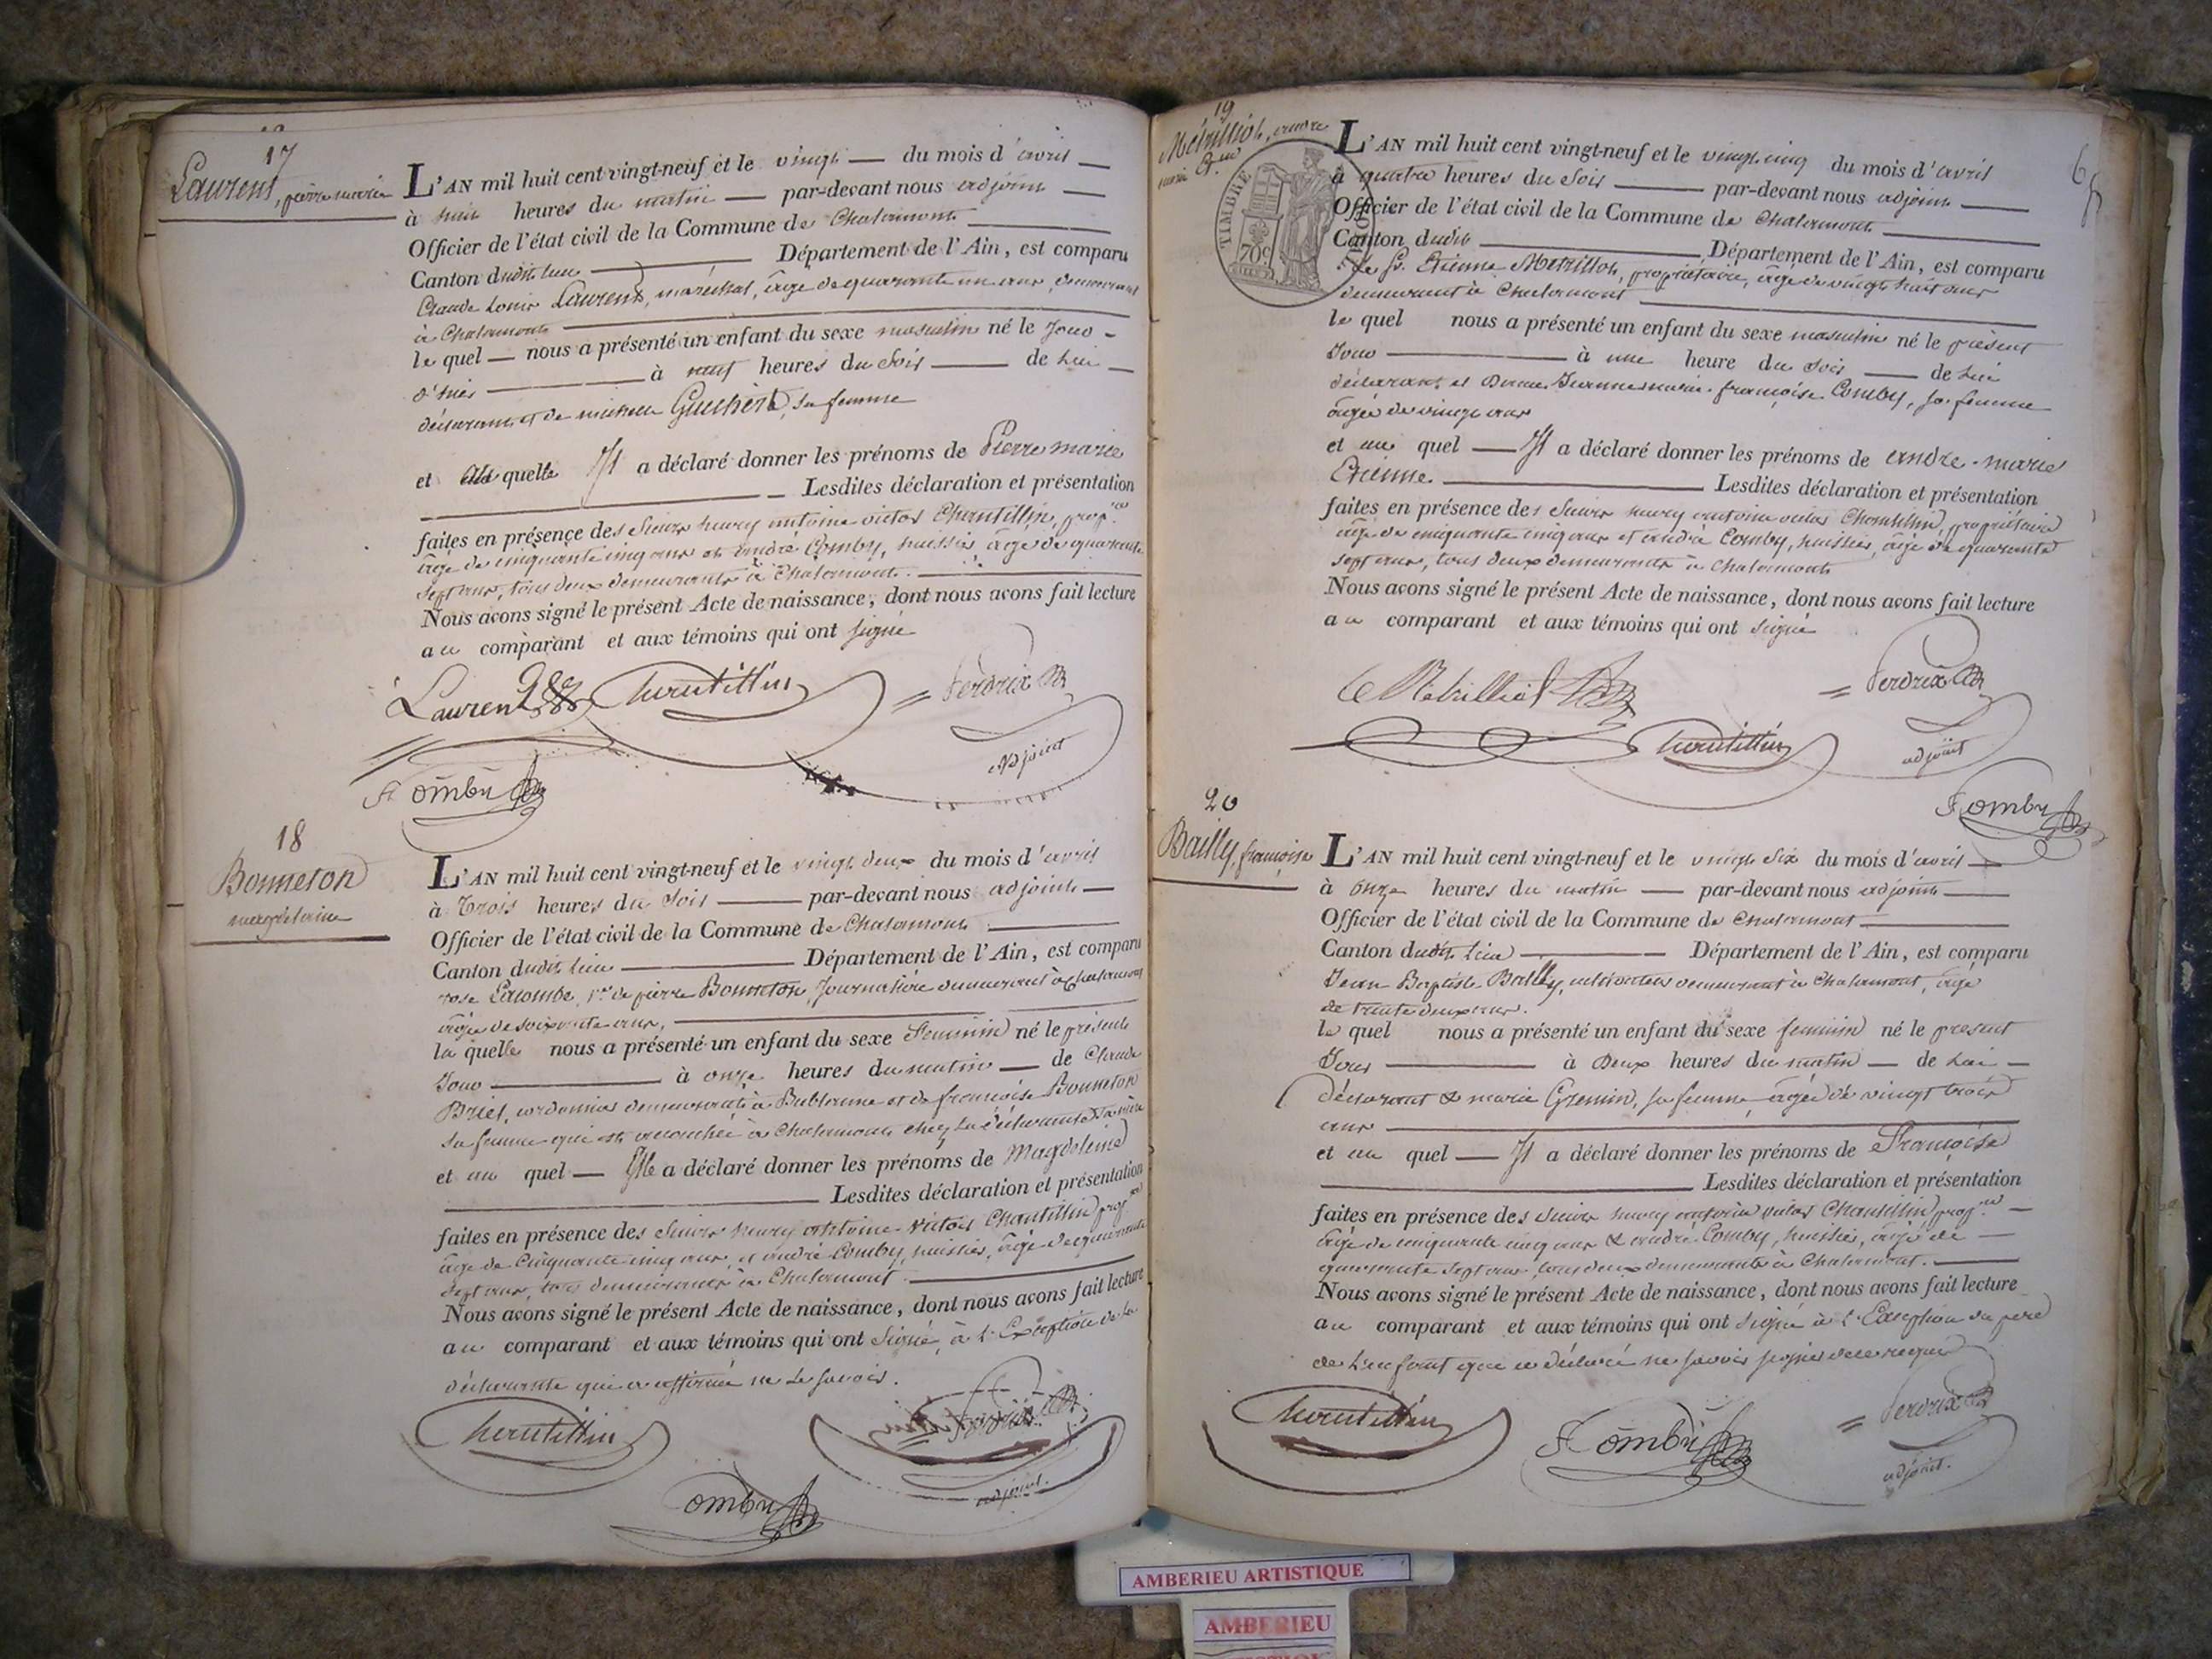 17
Laurent, pierre marie
L'AN mil huit cent vingt-neuf et le vingt du mois d'avril
à huit heures du matin par-devant nous adjoint
Officier de l'état civil de la Commune de Chalamont
Canton dudit lieu Département de l'Ain, est comparu
Claude Louis Laurent, maréchal, âgé de quarante un ans, demeurant
à Chalamont
le quel nous a présenté un enfant du sexe masculin né le Jour
d'hier à neuf heures du soir de lui
déclarant et de michelle Guichert, sa femme
et quelle Il a déclaré donner les prénoms de Pierre marie
Lesdites déclaration et présentation
faites en présence des Sieurs henry antoine victor Chantillin, prop.re
âgé de cinquante cinq ans et andré Comby, huissier, âgé de quarante
sept ans, tous deux demeurants à Chalamont.
Nous avons signé le présent Acte de naissance, dont nous avons fait lecture
au comparant et aux témoins qui ont signé
Laurent Chantillin Perdrix
adjoint
A Comby
18
Bonneton
magdelaine
L'AN mil huit cent vingt-neuf et le vingt deux du mois d'avril
à Trois heures du Soir par-devant nous adjoint
Officier de l'état civil de la Commune de Chalamont
Canton dudit lieu Département de l'Ain, est comparu
rose Lacombe, v.ve de pierre Bonneton, Journalière demeurant à Chalamont
âgée de soixante ans,
la quelle nous a présenté un enfant du sexe Feminin né le présent
Jour à onze heures du matin de Claude
Briel, cordonnier demeurant à Bublanne et de françoise Bonneton
sa femme qui est accouchée à Chalamont chez la déclarante sa mère
et au quel Elle a déclaré donner les prénoms de Magdeleine
Lesdites déclaration et présentation
faites en présence des Sieurs henry antoine Victor Chantillin prop.re
âgé de Cinquante cinq ans, et andré Comby, huissier, âgé de quarante
sept ans, tous demeurants à Chalamont.
Nous avons signé le présent Acte de naissance, dont nous avons fait lecture
au comparant et aux témoins qui ont Signé, à l'Exception de la
déclarante qui a affirmé ne le savoir.
Chantillin Perdrix
adjoint.
Comby
19
Métrillot, andre
marie Et.ne
TIMBRE
70c
L'AN mil huit cent vingt-neuf et le vingt cinq du mois d'avril
à quatre heures du Soir par-devant nous adjoint
Officier de l'état civil de la Commune de Chalamont
Canton dudit Département de l'Ain, est comparu
le Sr. Etienne Metrillot, propriétaire, âgé de vingt huit ans
demeurant à Chalamont
le quel nous a présenté un enfant du sexe masculin né le présent
Jour à une heure du Soir de lui
déclarant et Dame Jeanne marie françoise Comby, sa femme
âgée de vingt ans
et au quel Il a déclaré donner les prénoms de andré marie
Etienne. Lesdites déclaration et présentation
faites en présence des Sieurs henry antoine victor Chantillin, propriétaire
âgé de cinquante cinq ans et andré Comby, huissier, âgé de quarante
sept ans, tous deux demeurants à Chalamont
Nous avons signé le présent Acte de naissance, dont nous avons fait lecture
au comparant et aux témoins qui ont signé
Metrilliot Perdrix
Chantillin adjoint
A Comby
20
Bailly, françoise
L'AN mil huit cent vingt-neuf et le vingt Six du mois d'avril
à onze heures du matin par-devant nous adjoint
Officier de l'état civil de la Commune de Chalamont
Canton dudit lieu Département de l'Ain, est comparu
Jean Baptiste Bailly, cultivateur demeurant à Chalamont, âgé
de trente deux ans.
le quel nous a présenté un enfant du sexe feminin né le present
Jour à Deux heures du matin de lui
déclarant & marie Gremin, sa femme, âgée de vingt trois
ans
et au quel Il a déclaré donner les prénoms de Françoise
Lesdites déclaration et présentation
faites en présence des Sieurs henry antoine victor Chantillin prop.re
âgé de cinquante cinq ans & andré Comby, huissier, âgé de
quarante sept ans, tous deux demeurants à Chalamont.
Nous avons signé le présent Acte de naissance, dont nous avons fait lecture
au comparant et aux témoins qui ont signé à l'Exception du père
de l'enfant que a déclaré ne savoir signer de ce requis
Chantillin A Comby Perdrix
adjoint.
AMBERIEU ARTISTIQUE
AMBERIEU